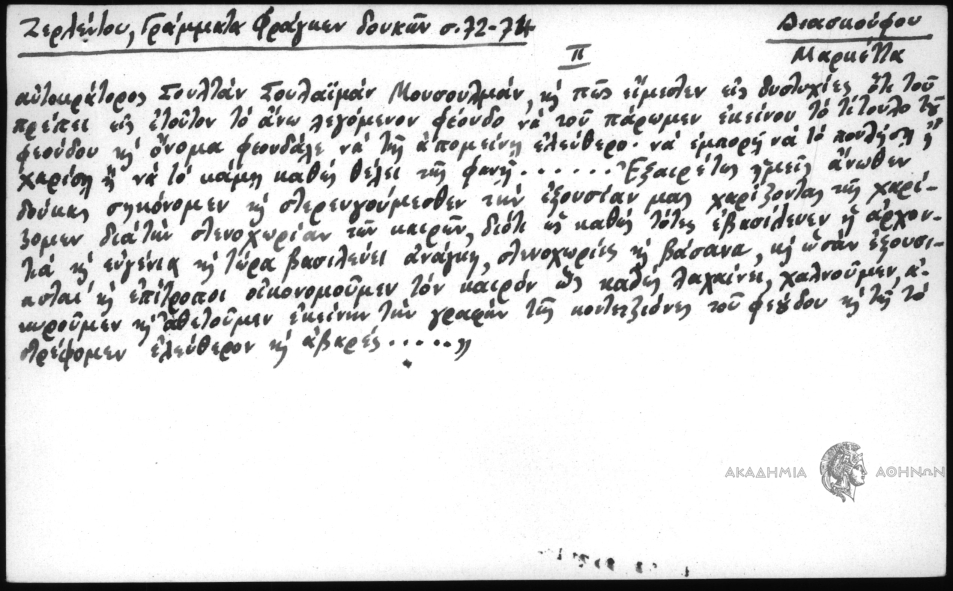 Ζερλέντου, Γράμματα Φράγκων δουκῶν σ. 72-74
Διασκούφου
Μαρκέττα
II
αὐτοκράτορος Σουλτάν Σουλαϊμάν Μουσουλμάν, κῃ πῶς εἴμεστεν εἰς δυστυχίες ὅτι τοῦ
πρέπει εἰς ἐτοῦτον τὸ ἄνω λεγόμενον φέουδο νὰ τοῦ πάρωμεν ἐκείνου τὸ τίτουλο τοῦ
φεούδου κῃ ὄνομα φεουδάλε νὰ τῆς ἀπομείνῃ ἐλεύθερο· νὰ ἐμπορῇ νὰ τὸ πουλήσῃ ἢ
χαρίσῃ ἢ νὰ τὸ κάμῃ καθὼς θέλει τῆς φανῇ...... Ἐξαιρέτως ἡμεῖς ἄνωθεν
δούκας σηκόνομεν κῃ στερευγούμεσθεν τὴν ἐξουσίαν μας χαρίζοντας τῆς χαρί-
ζομεν διὰ τὴν στενοχωρίαν τῶν καιρῶν, διότι ὡς καθὼς τότες ἐβασίλευεν ἡ ἀρχον-
τιά κῃ εὐγένια κῃ τώρα βασιλεύει ἀνάγκη, στενοχωρίες κῃ βάσανα, κῃ ὡσάν ἐξουσι-
ασταί κῃ ἐπίτροποι οἰκονομοῦμεν τὸν καιρόν ὡς καθὼς λαχαίνει, χαλνοῦμεν, ἀ-
κυροῦμεν κῃ ἀθετοῦμεν ἐκείνην τὴν γραφὴν τῆς κοντετζιόνες τοῦ φεούδου κῃ τῆς τὸ
στρέφομεν ἐλεύθερον κῃ ἀβαρές.....»
ΑΚΑΔΗΜΙΑ ΑΘΗΝΩΝ